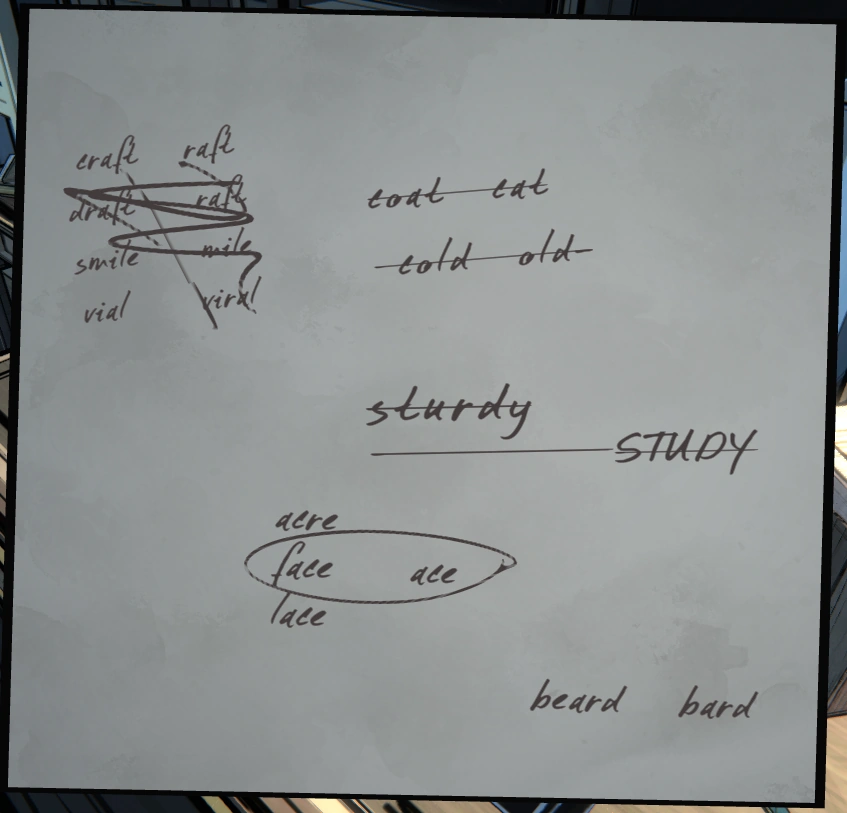 craft raft
draft raft
smile mile
vial viral
coat cat
cold old
sturdy
STUDY
acre
face ace
lace
beard bard